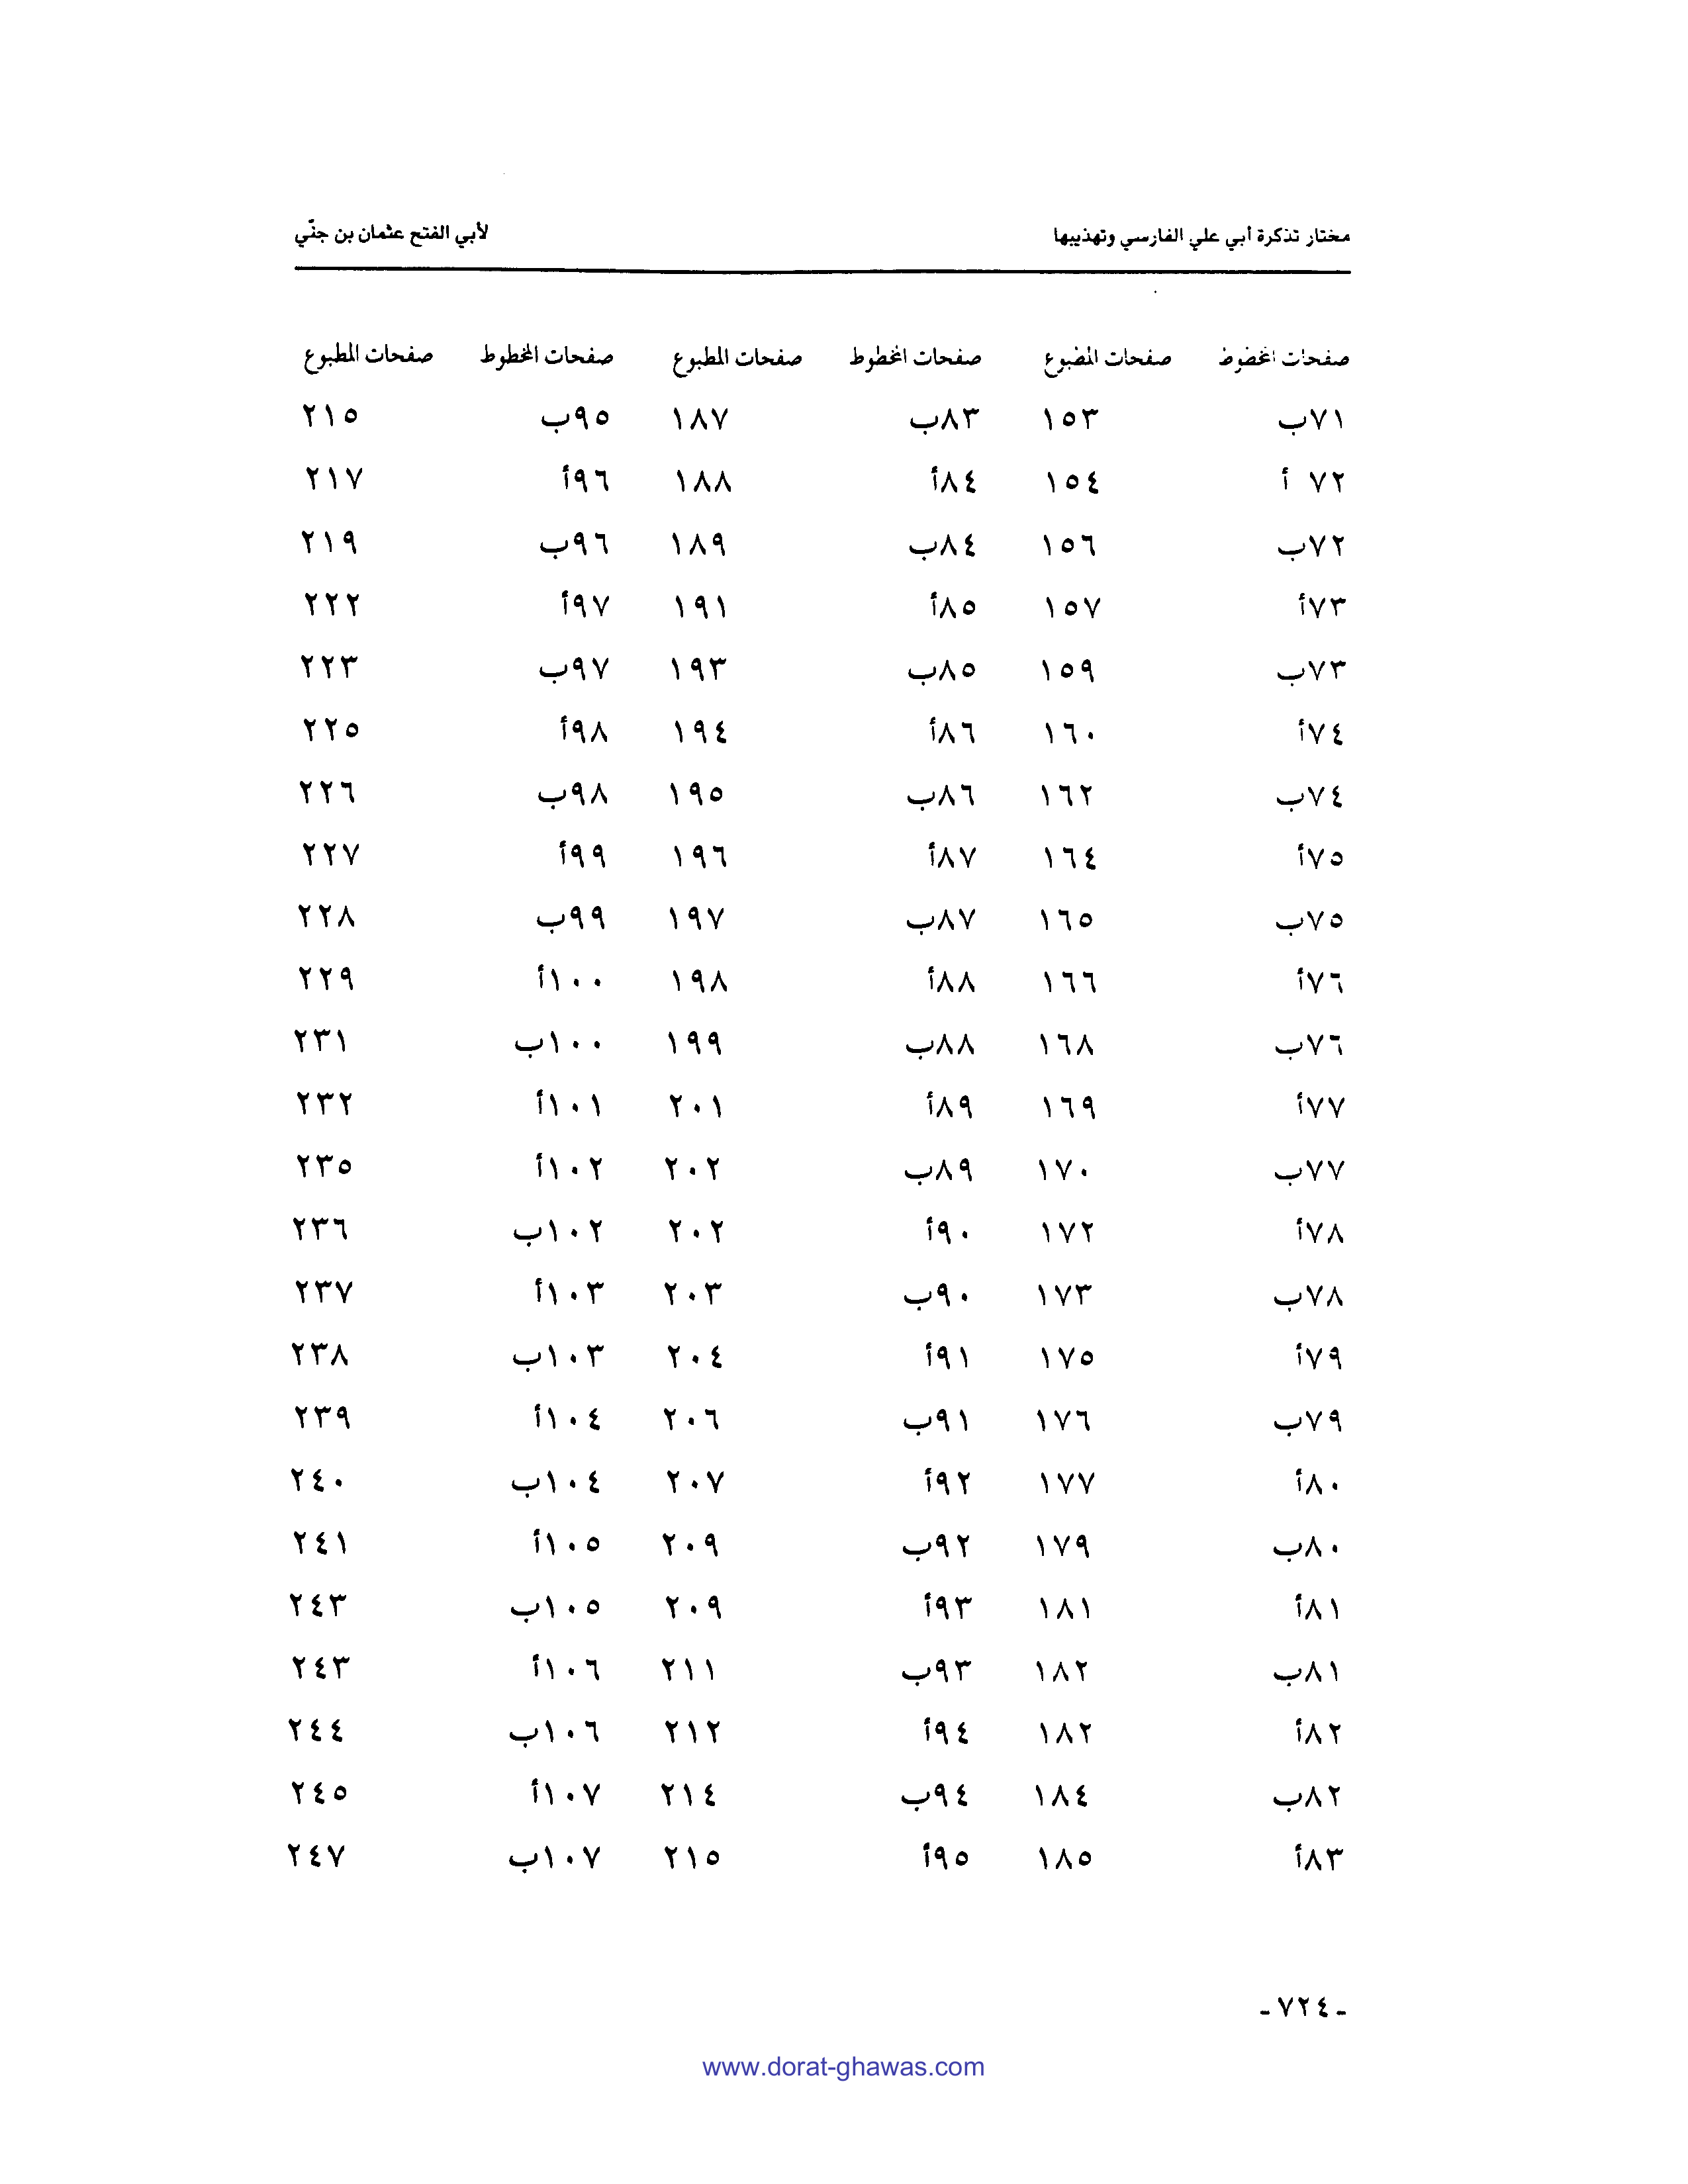 مختار تذكرة أبي علي الفارسي وتهذيبها لأبي الفتح عثمان بن جنّي
صفحات المخطوط صفحات المطبوع صفحات المخطوط صفحات المطبوع صفحات المخطوط صفحات المطبوع
٧١ب ١٥٣ ٨٣ب ١٨٧ ٩٥ب ٢١٥
٧٢ أ ١٥٤ ٨٤أ ١٨٨ ٩٦أ ٢١٧
٧٢ب ١٥٦ ٨٤ب ١٨٩ ٩٦ب ٢١٩
٧٣أ ١٥٧ ٨٥أ ١٩١ ٩٧أ ٢٢٢
٧٣ب ١٥٩ ٨٥ب ١٩٣ ٩٧ب ٢٢٣
٧٤أ ١٦٠ ٨٦أ ١٩٤ ٩٨أ ٢٢٥
٧٤ب ١٦٢ ٨٦ب ١٩٥ ٩٨ب ٢٢٦
٧٥أ ١٦٤ ٨٧أ ١٩٦ ٩٩أ ٢٢٧
٧٥ب ١٦٥ ٨٧ب ١٩٧ ٩٩ب ٢٢٨
٧٦أ ١٦٦ ٨٨أ ١٩٨ ١٠٠أ ٢٢٩
٧٦ب ١٦٨ ٨٨ب ١٩٩ ١٠٠ب ٢٣١
٧٧أ ١٦٩ ٨٩أ ٢٠١ ١٠١أ ٢٣٢
٧٧ب ١٧٠ ٨٩ب ٢٠٢ ١٠٢أ ٢٣٥
٧٨أ ١٧٢ ٩٠أ ٢٠٢ ١٠٢ب ٢٣٦
٧٨ب ١٧٣ ٩٠ب ٢٠٣ ١٠٣أ ٢٣٧
٧٩أ ١٧٥ ٩١أ ٢٠٤ ١٠٣ب ٢٣٨
٧٩ب ١٧٦ ٩١ب ٢٠٦ ١٠٤أ ٢٣٩
٨٠أ ١٧٧ ٩٢أ ٢٠٧ ١٠٤ب ٢٤٠
٨٠ب ١٧٩ ٩٢ب ٢٠٩ ١٠٥أ ٢٤١
٨١أ ١٨١ ٩٣أ ٢٠٩ ١٠٥ب ٢٤٣
٨١ب ١٨٢ ٩٣ب ٢١١ ١٠٦أ ٢٤٣
٨٢أ ١٨٢ ٩٤أ ٢١٢ ١٠٦ب ٢٤٤
٨٢ب ١٨٤ ٩٤ب ٢١٤ ١٠٧أ ٢٤٥
٨٣أ ١٨٥ ٩٥أ ٢١٥ ١٠٧ب ٢٤٧
- ٧٢٤ -
www.dorat-ghawas.com